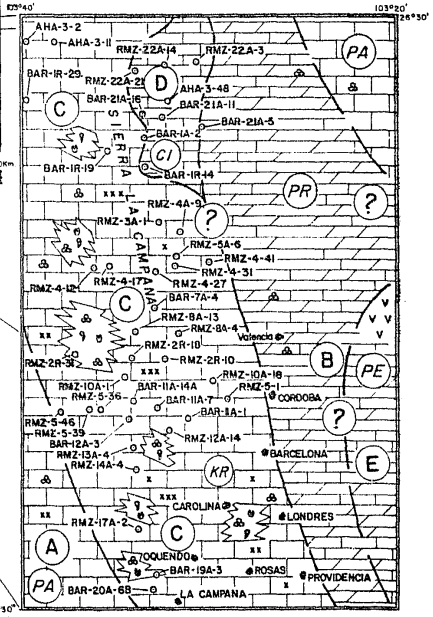 103°40'
103°20'
26°30'
AHA-3-2
AHA-3-11
RMZ-22A-14
RMZ-22A-3
PA
BAR-1R-29
RMZ-22A-21
D
AHA-3-48
C
BAR-21A-16
BAR-21A-11
BAR-21A-5
BAR-1A-2
SIERRA LA CAMPANA
CI
Km
BAR-1R-19
BAR-1R-14
xxx
RMZ-4A-9
PR
?
RMZ-3A-1
?
x
RMZ-5A-6
RMZ-4-41
RMZ-4-31
RMZ-4-12
RMZ-4-17
RMZ-4-27
C
BAR-7A-4
RMZ-8A-13
V V
V
xx
RMZ-8A-4
Valencia
RMZ-2R-18
B
RMZ-2R-31
RMZ-2R-10
PE
xxx
RMZ-10A-1
RMZ-10A-18
RMZ-5-36
BAR-11A-14A
RMZ-5-1
CORDOBA
BAR-11A-7
?
RMZ-5-46
BAR-1A-1
RMZ-5-39
BAR-12A-3
RMZ-12A-14
RMZ-13A-4
BARCELONA
RMZ-14A-4
KR
E
x
x
xxx
CAROLINA
xx
LONDRES
RMZ-17A-2
C
A
xx
OQUENDO
PA
BAR-19A-3
ROSAS
PROVIDENCIA
x
BAR-20A-6B
LA CAMPANA
30'